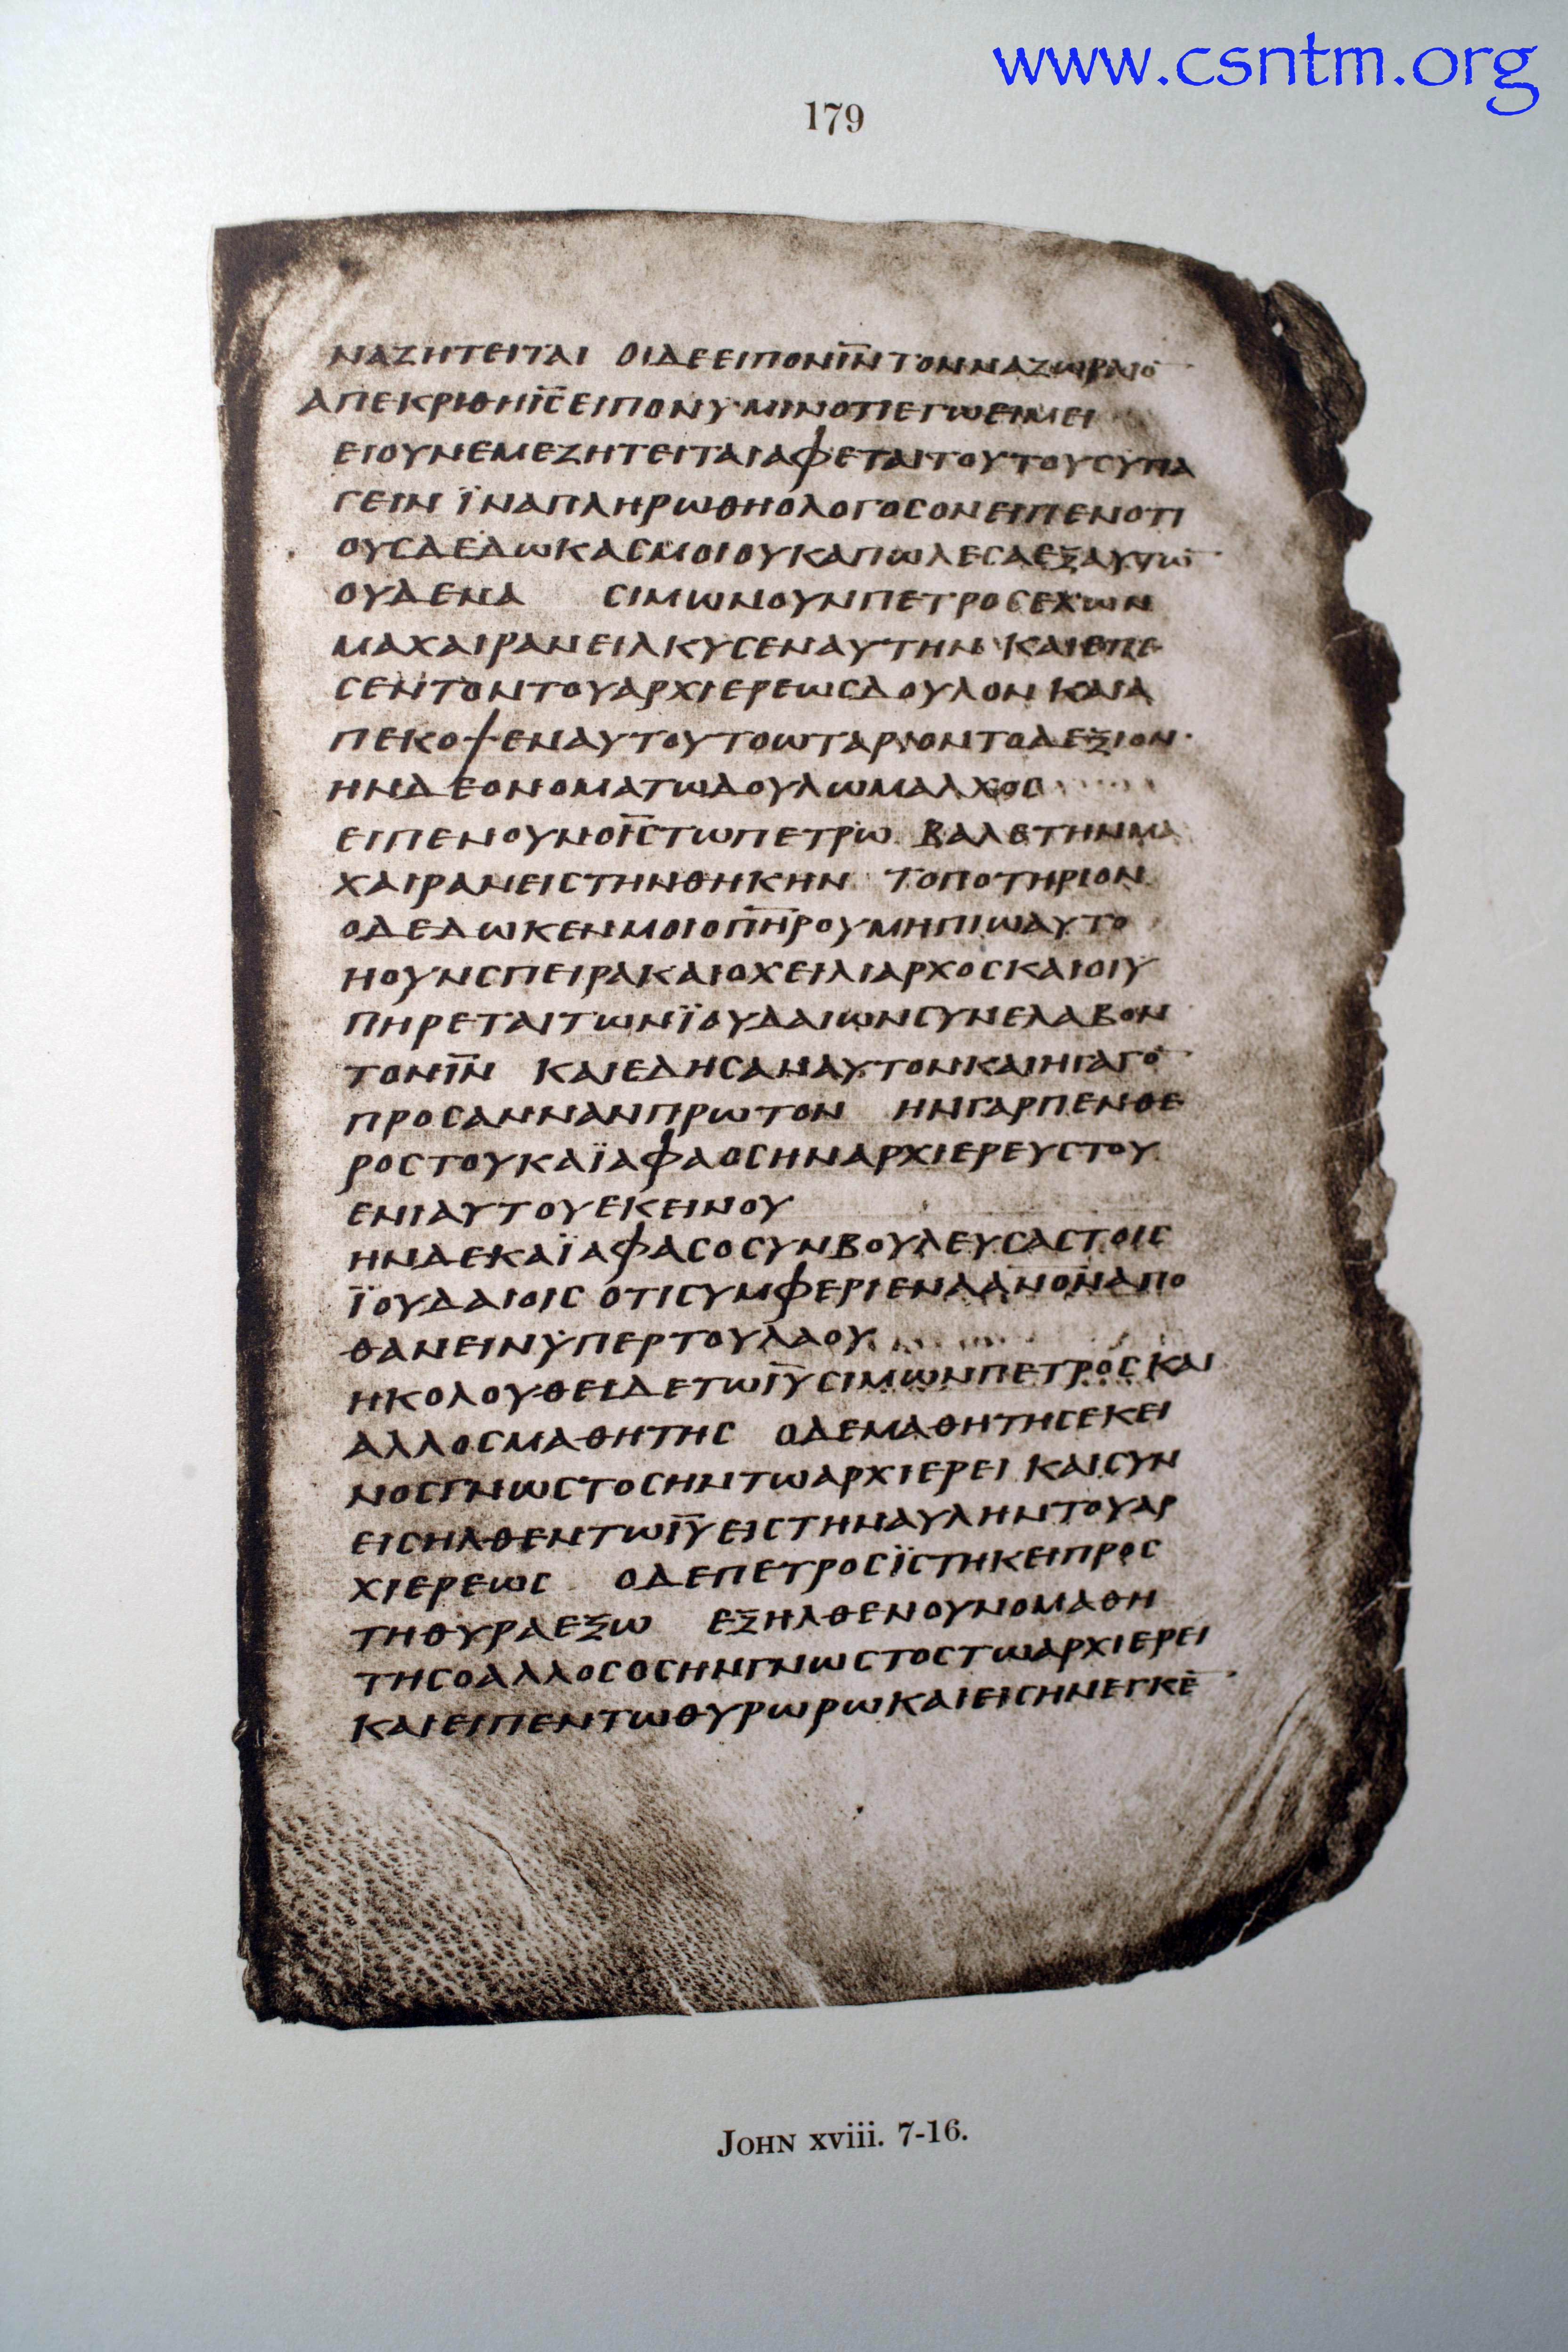 www.csntm.org
179
ΝΑΖΗΤΕΙΤΑΙ ΟΙΔΕΕΙΠΟΝΙ̅Ν̅ΤΟΝΝΑΖΩΡΑΙΟ̅
ΑΠΕΚΡΙΘΗΙ̅Ϲ̅ΕΙΠΟΝΥΜΙΝΟΤΙΕΓΩΕΙΜΕΙ
ΕΙΟΥΝΕΜΕΖΗΤΕΙΤΑΙΑΦΕΤΑΙΤΟΥΤΟΥϹΥΠΑ
ΓΕΙΝ ΪΝΑΠΛΗΡΩΘΗΟΛΟΓΟϹΟΝΕΙΠΕΝΟΤΙ
ΟΥϹΔΕΔΩΚΑϹΜΟΙΟΥΚΑΠΩΛΕϹΑΕΞΑΥΤΩ̅
ΟΥΔΕΝΑ ϹΙΜΩΝΟΥΝΠΕΤΡΟϹΕΧΩΝ
ΜΑΧΑΙΡΑΝΕΙΛΚΥϹΕΝΑΥΤΗΝ ΚΑΙΕΠΕ
ϹΕΝΤΟΝΤΟΥΑΡΧΙΕΡΕΩϹΔΟΥΛΟΝ ΚΑΙΑ
ΠΕΚΟΨΕΝΑΥΤΟΥΤΟΩΤΑΡΙΟΝΤΟΔΕΞΙΟΝ·
ΗΝΔΕΟΝΟΜΑΤΩΔΟΥΛΩΜΑΛΧΟϹ
ΕΙΠΕΝΟΥΝΟΙ̅Ϲ̅ΤΩΠΕΤΡΩ ΒΑΛΕΤΗΝΜΑ
ΧΑΙΡΑΝΕΙϹΤΗΝΘΗΚΗΝ ΤΟΠΟΤΗΡΙΟΝ
ΟΔΕΔΩΚΕΝΜΟΙΟΠ̅Η̅Ρ̅ΟΥΜΗΠΙΩΑΥΤΟ
ΗΟΥΝϹΠΕΙΡΑΚΑΙΟΧΕΙΛΙΑΡΧΟϹΚΑΙΟΙΥ
ΠΗΡΕΤΑΙΤΩΝΪΟΥΔΑΙΩΝϹΥΝΕΛΑΒΟΝ
ΤΟΝΙ̅Ν̅ ΚΑΙΕΔΗϹΑΝΑΥΤΟΝΚΑΙΗΓΑΓΟ̅
ΠΡΟϹΑΝΝΑΝΠΡΩΤΟΝ ΗΝΓΑΡΠΕΝΘΕ
ΡΟϹΤΟΥΚΑΪΑΦΑΟϹΗΝΑΡΧΙΕΡΕΥϹΤΟΥ
ΕΝΙΑΥΤΟΥΕΚΕΙΝΟΥ
ΗΝΔΕΚΑΪΑΦΑϹΟϹΥΝΒΟΥΛΕΥϹΑϹΤΟΙϹ
ΪΟΥΔΑΙΟΙϹ ΟΤΙϹΥΜΦΕΡΙΕΝΑΑ̅Ν̅Ο̅Ν̅ΑΠΟ
ΘΑΝΕΙΝΥΠΕΡΤΟΥΛΑΟΥ
ΗΚΟΛΟΥΘΕΙΔΕΤΩΙ̅Υ̅ϹΙΜΩΝΠΕΤΡΟϹΚΑΙ
ΑΛΛΟϹΜΑΘΗΤΗϹ ΟΔΕΜΑΘΗΤΗϹΕΚΕΙ
ΝΟϹΓΝΩϹΤΟϹΗΝΤΩΑΡΧΙΕΡΕΙ ΚΑΙϹΥΝ
ΕΙϹΗΛΘΕΝΤΩΙ̅Υ̅ΕΙϹΤΗΝΑΥΛΗΝΤΟΥΑΡ
ΧΙΕΡΕΩϹ ΟΔΕΠΕΤΡΟϹΪϹΤΗΚΕΙΠΡΟϹ
ΤΗΘΥΡΑΕΞΩ ΕΞΗΛΘΕΝΟΥΝΟΜΑΘΗ
ΤΗϹΟΑΛΛΟϹΟϹΗΝΓΝΩϹΤΟϹΤΩΑΡΧΙΕΡΕΙ
ΚΑΙΕΙΠΕΝΤΩΘΥΡΩΡΩΚΑΙΕΙϹΗΝΕΓΚΕ̅
JOHN xviii. 7-16.